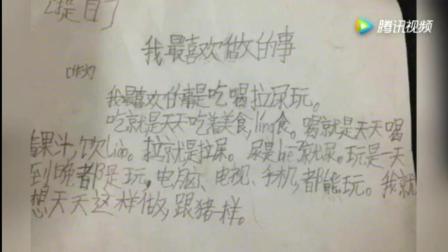 [题目]
腾讯视频
我最喜欢做的事
我最喜欢的事是吃喝拉尿玩。
吃就是天天吃着美食,ling食。喝就是天天喝
果汁,饮liào。拉尔就是拉屎。尿是就尿。玩是一天
到晚都是玩,电脑、电视、手机,都能玩。我就
想天天这样做,跟猪一样。